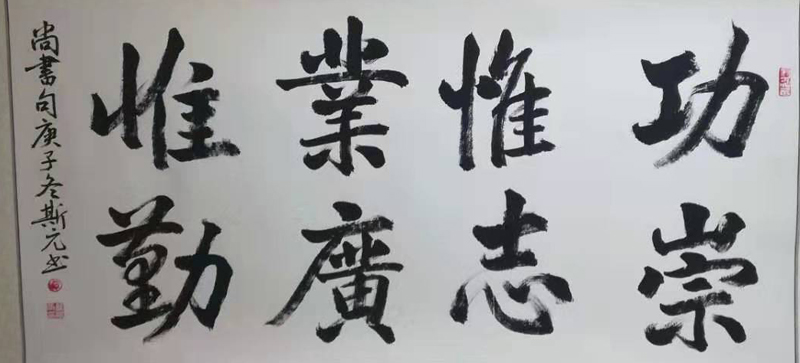 功崇
惟志
業廣
惟勤
尚書句庚子冬斯元书